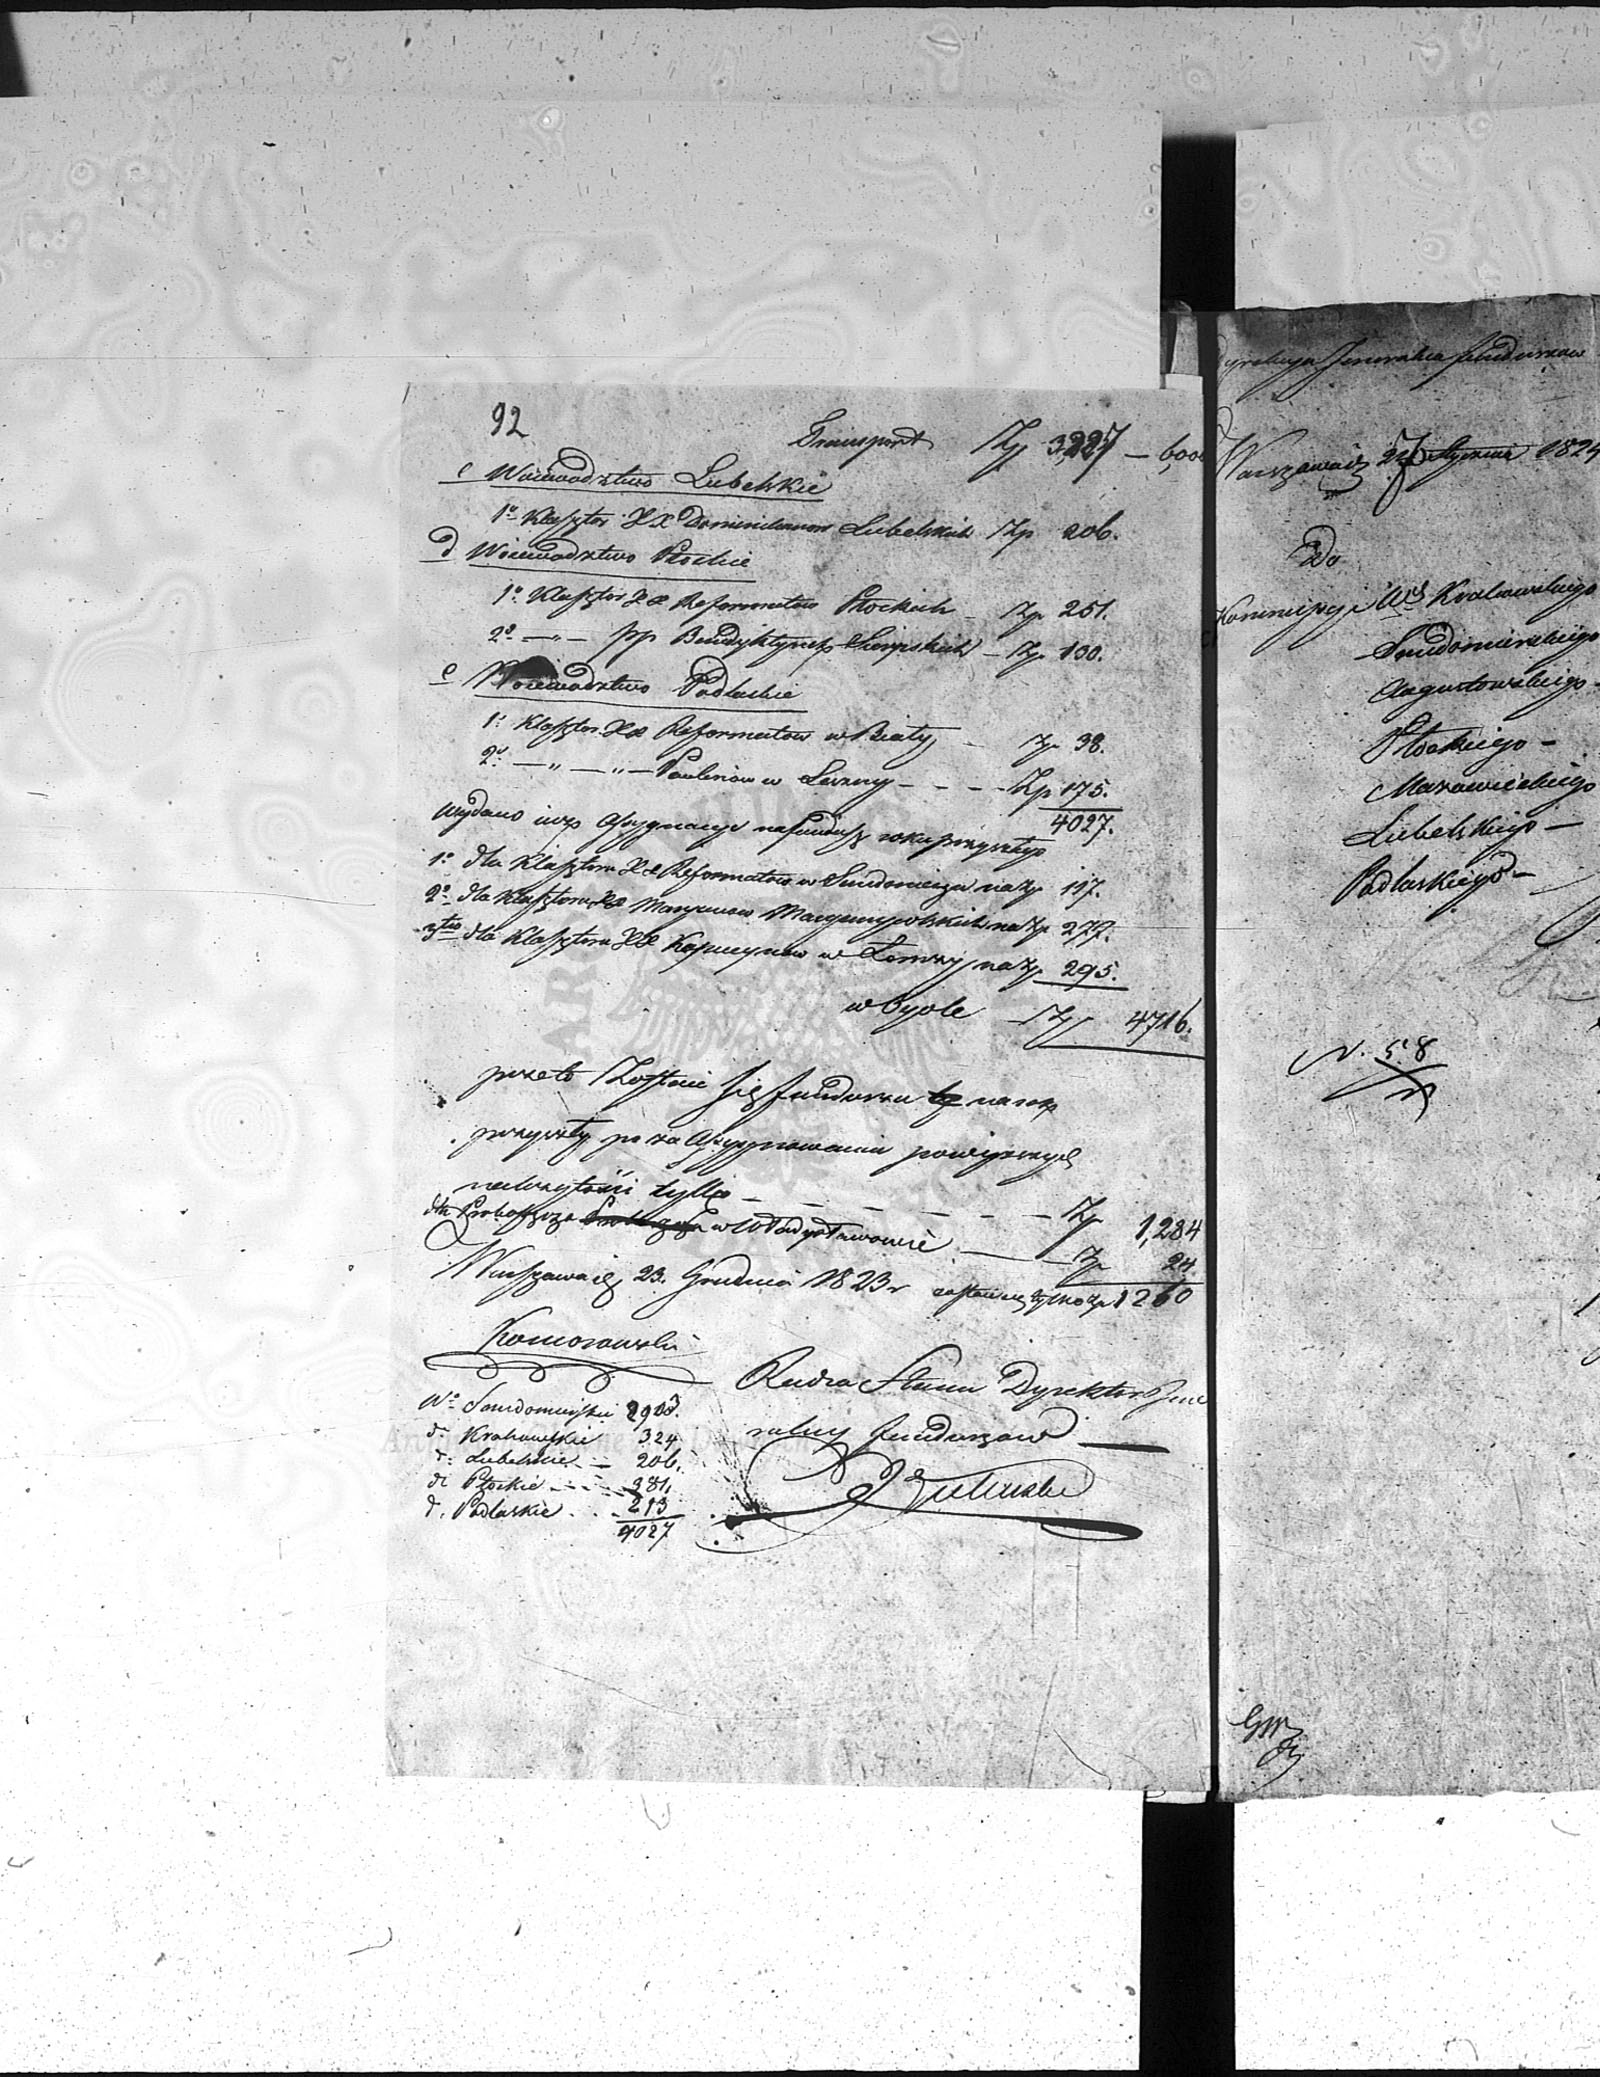 92
Transport Zp 3,227 — 6,000
c Woiewodztwo Lubelskie
1o Klasztor XX Dominikanow Lubelskich Zp 206.
d Woiewodztwo Płockie
1o Klasztor XX Reformatow Płockich — Zp 251.
2o — „ — pp Benedyktynek Sierpskich — Zp 130.
e Woiewodztwo Podlaskie
1o Klasztor XX Reformatow w Biały — Zp 38.
2o — „ — „ — Paulinow w Leszny — — — Zp 175.
4027.
Wydano iuż Assygnacye na fundusz roku przyszłego
1o dla Klasztoru XX Reformatow w Sandomierzu na Zp 117.
2o dla Klasztoru XX Maryanow Maryampolskich na Zp 277.
3tio dla Klasztoru XX Kapucynow w Łomży na Zp 295.
w Ogole Zp 4716.
przeto Zostaie się funduszu na rok
przyszły po za Assygnowaniu powyższych
należytości tylko — — — — — — Zp 1,284
dla Proboszcza w Władysławowie — Zp 24
Warszawa d. 23. Grudnia 1823 r zostaie się tylko Zp 1260
Komorowski
Radca Stanu Dyrektor Jene
ralny Funduszow —
Wo Sandomirskie 2903.
do Krakowskie 324
do Lubelskie — 206.
do Płockie — 381.
do Podlaskie . . 213
4027
Dyrekcya Jeneralna funduszow
Warszawa d. 27 Stycznia 1824
Do
Kommissyi Ws Krakowskiego
Sandomirskiego
Augustowskiego —
Płockiego —
Mazowieckiego
Lubelskiego —
Podlaskiego —
N. 58